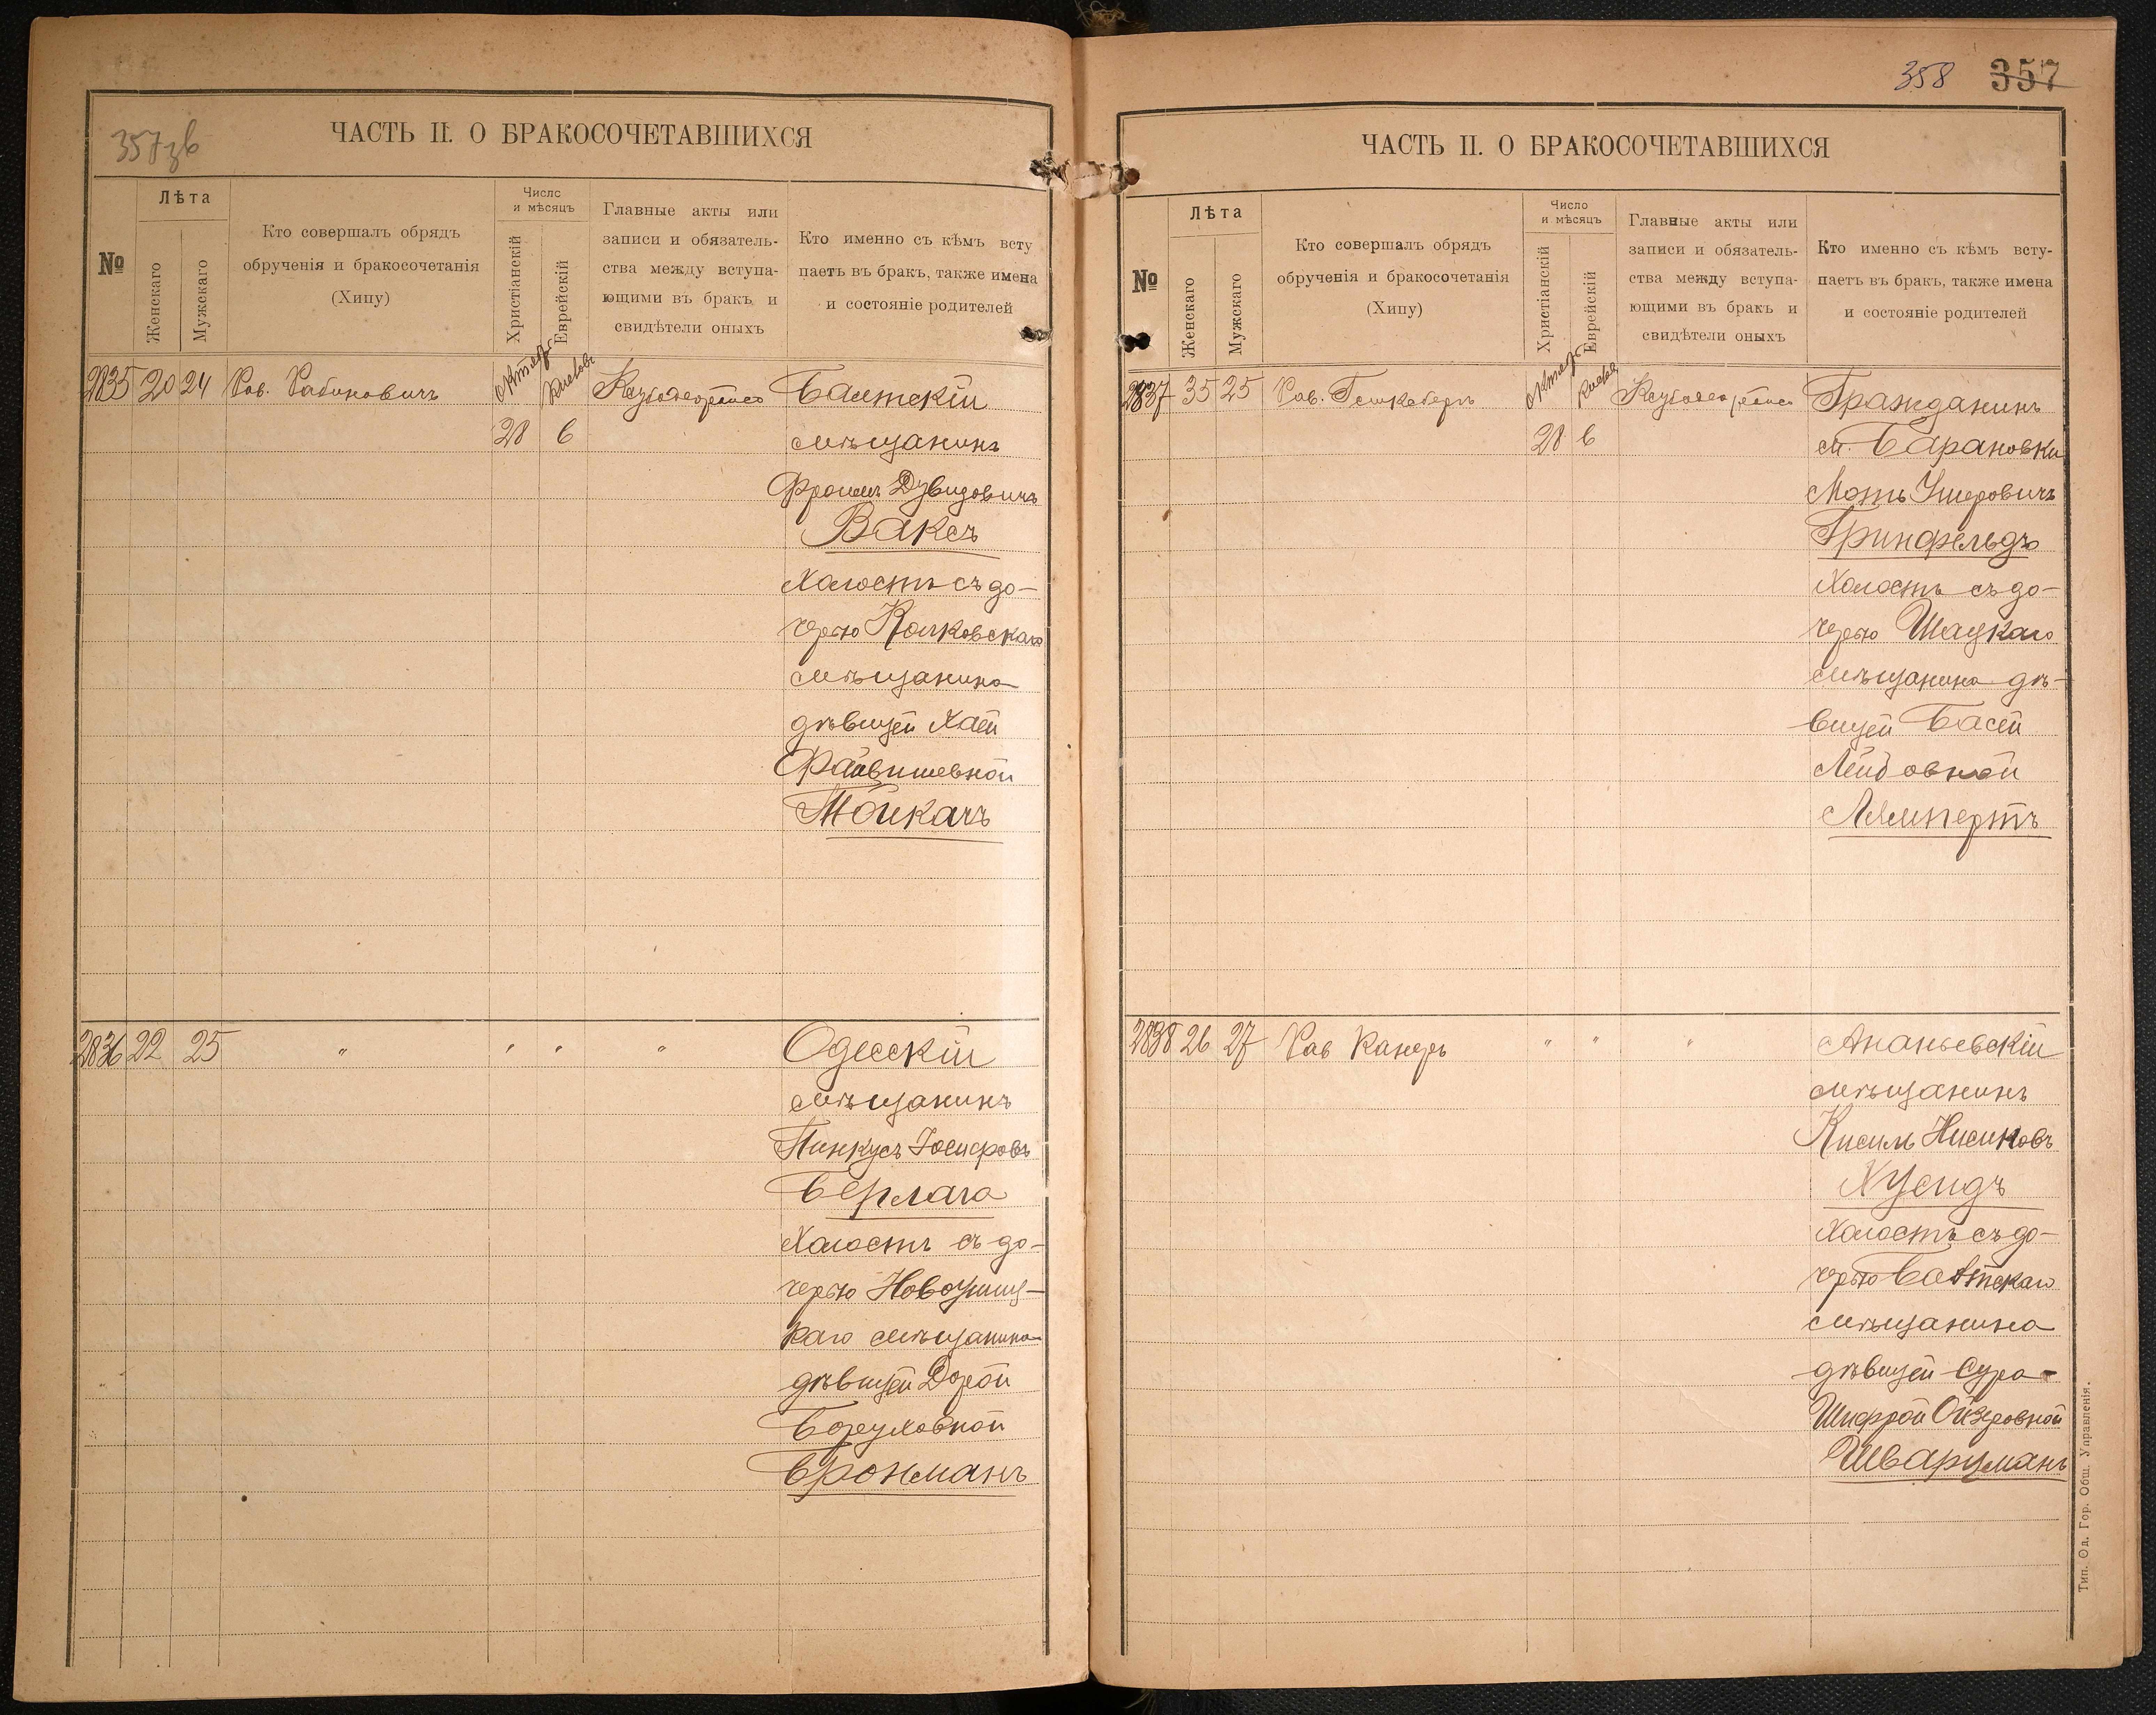 357 зв
ЧАСТЬ II. О БРАКОСОЧЕТАВШИХСЯ
№
Лѣта
Женскаго
Мужскаго
Кто совершалъ обрядъ
обрученія и бракосочетанія
(Хипу)
Число
и мѣсяцъ
Христіанскій
Еврейскій
Главные акты или
записи и обязатель-
ства между вступа-
ющими въ бракъ и
свидѣтели оныхъ
Кто именно съ кѣмъ всту
паетъ въ бракъ, также имена
и состояніе родителей
2835 20 24 Рав. Рабиновичъ
28 6
Балтскій
мѣщанинъ
Фроимъ Дувидовичъ
Ваксъ
холостъ съ до-
черью Колковскаго
мѣщанина
дѣвицей Хаей
Файвишевной
Мойкачъ
2836 22 25 " " " "
Одесскій
мѣщанинъ
Пинкусъ Іосифовъ
Берлага
холостъ съ до-
черью Новоушиц-
каго мѣщанина
дѣвицей Дорой
Боруховной
Бронманъ
358 357
ЧАСТЬ II. О БРАКОСОЧЕТАВШИХСЯ
№
Лѣта
Женскаго
Мужскаго
Кто совершалъ обрядъ
обрученія и бракосочетанія
(Хипу)
Число
и мѣсяцъ
Христіанскій
Еврейскій
Главные акты или
записи и обязатель-
ства между вступа-
ющими въ бракъ и
свидѣтели оныхъ
Кто именно съ кѣмъ всту-
паетъ въ бракъ, также имена
и состояніе родителей
2837 35 25 Рав.
28 6
Гражданинъ
м. Барановки
Моть Ушеровичъ
Гринфельдъ
холостъ съ до-
черью Шацкаго
мѣщанина дѣ-
вицей Басей
Лейбовной
Лямпертъ
2838 26 27 Рав Канеръ " " "
Ананьевскій
мѣщанинъ
Кисиль Нисиновъ
Хусидъ
холостъ съ до-
черью Балтскаго
мѣщанина
дѣвицей Сура-
Шифрой Ойзеровной
Шварцманъ
Тип. Од. Гор. Общ. Управленія.